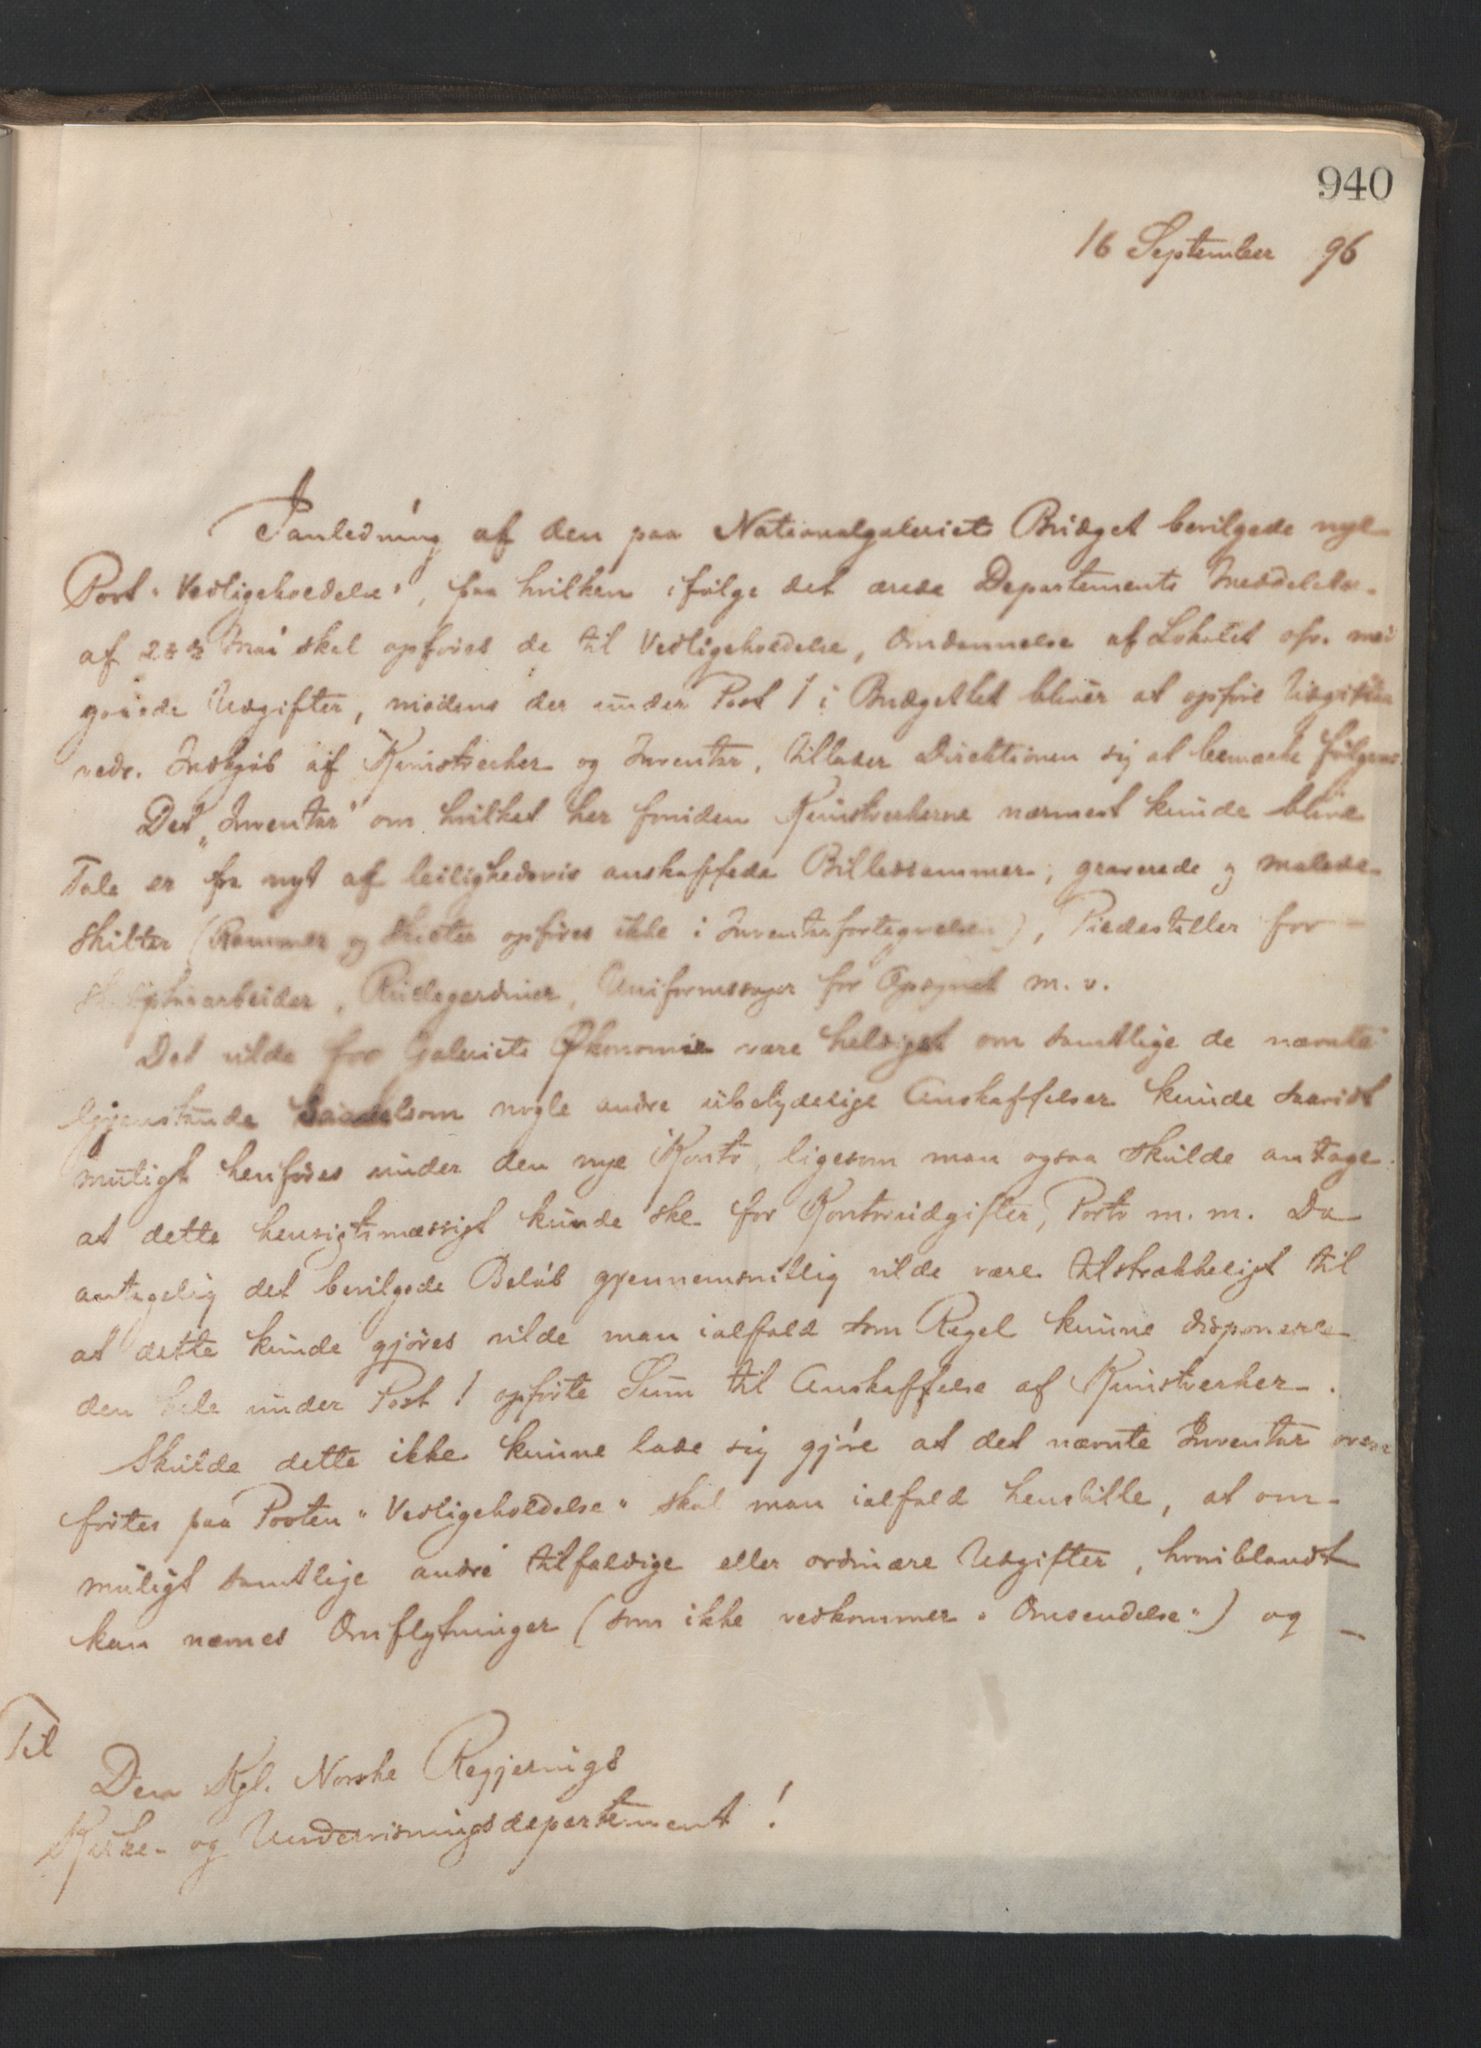 940
16 September 96
I anledning af den paa Nationalgaleriets Budget bevilgede nye
Post "Vedligeholdelse", paa hvilken ifölge det ærede Departements Meddelelse
af 28de Mai skal opföres de til Vedligeholdelse, Omdannelse af Lokalet osv. med
gaaede Udgifter, medens der under Post 1 i Budgettet bliver at opföre Udgifter
vedr. Indkjöb af Kunstverker og Inventar, tillader Direktionen sig at bemærke fölgende
Det "Inventar" om hvilket her foruden Kunstverkerne nærmest kunde blive
Tale er fra nyt af leilighedsvis anskaffede Billedrammer, graverede og malede
skilter (Rammer og skilter opföres ikke i Inventarfortegnelsen), Piedestaller for
Skulpturarbeider, Rullegardiner, Uniformssager for Opsynet m. v.
Det vilde for Galeriets Økonomie være heldigst om samtlige de nævnte
Gjenstande saavelsom nogle andre ubetydelige Anskaffelser kunde saavidt
muligt henföres under den nye Konto, ligesom man ogsaa skulde antage
at dette hensigtsmæssigt kunde ske for Kontorudgifter, Porto m. m. Da
antagelig det bevilgede Belöb gjennemsnitlig vilde være tilstrækkeligt til
at dette kunde gjöres vilde man ialfald som Regel kunne disponere
den hele under Post 1 opförte Sum til Anskaffelse af Kunstverker.
Skulde dette ikke kunne lade sig gjöre at det nævnte Inventar over
förtes paa Posten "Vedligeholdelse" skal man ialfald henstille, at om
muligt samtlige andre tilfældige eller ordinære Udgifter, hvoriblandt
kan nævnes Omflytninger (som ikke vedkommer "Omsendelse") og
Til
Den Kgl. Norske Regjerings
Kirke- og Undervisningsdepartement!